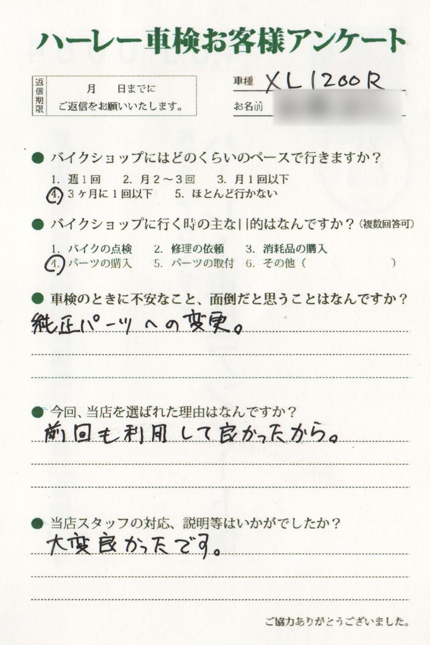 ハーレー車検お客様アンケート
返信期限
月　日までに
ご返信をお願いいたします。
車種 XL1200R
お名前
● バイクショップにはどのくらいのペースで行きますか？
1. 週1回 2. 月2～3回 3. 月1回以下
4. 3ヶ月に1回以下 5. ほとんど行かない
● バイクショップに行く時の主な目的はなんですか？(複数回答可)
1. バイクの点検 2. 修理の依頼 3. 消耗品の購入
4. パーツの購入 5. パーツの取付 6. その他（　　　）
● 車検のときに不安なこと、面倒だと思うことはなんですか？
純正パーツへの変更。
● 今回、当店を選ばれた理由はなんですか？
前回も利用して良かったから。
● 当店スタッフの対応、説明等はいかがでしたか？
大変良かったです。
ご協力ありがとうございました。